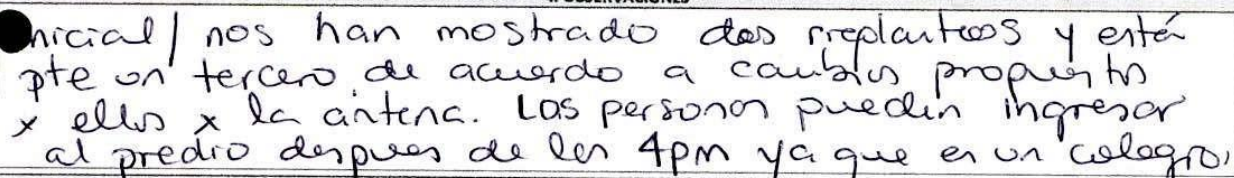 Inicial/ nos han mostrado dos rreplanteos y está
pte un tercero de acuerdo a cambios propuestos
x ellos x la antena. Las personas pueden ingresar
al predio despues de las 4pm ya que es un colegio,